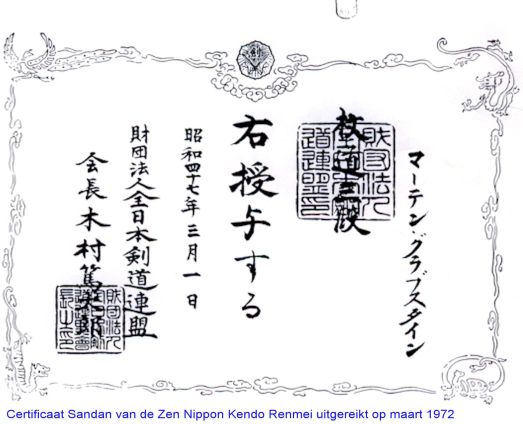 マーテン・グラブスタイン
杖道三段
右授与する
昭和四十七年三月一日
財団法人全日本剣道連盟
会長木村篤太郎
Certificaat Sandan van de Zen Nippon Kendo Renmei uitgereikt op maart 1972